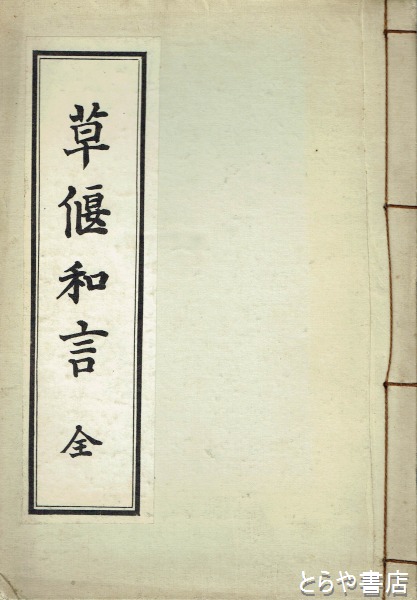 草偃和言 全
とらや書店